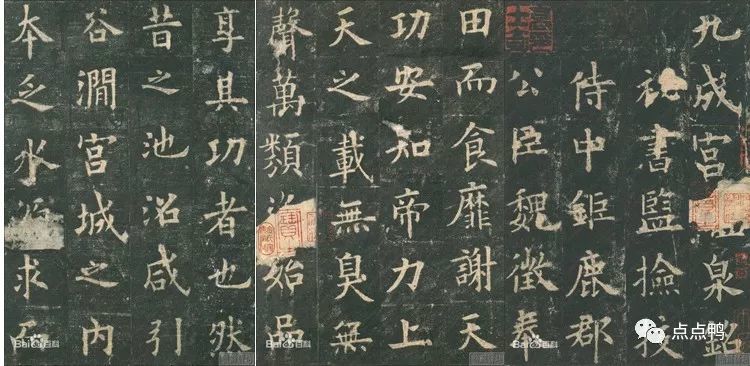 九成宮泉銘
祕書監撿挍
侍中鉅鹿郡
公臣魏徵奉
田而食靡謝天
功安知帝力上
天之載無臭無
聲萬類始品
享其功者也然
昔之池沼咸引
谷澗宮城之內
本乏水求而
Bai百科
Bai百科
Bai百科
点点鸭